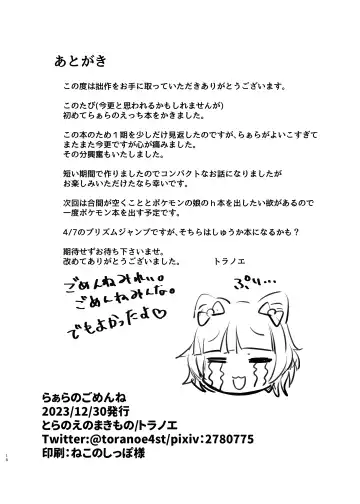 あとがき
この度は拙作をお手に取っていただきありがとうございます。
このたび(今更と思われるかもしれませんが)
初めてらぁらのえっち本をかきました。
この本のため1期を少しだけ見返したのですが、らぁらがよいこすぎて
またまた今更ですが心が痛みました。
その分興奮もいたしました。
短い期間で作りましたのでコンパクトなお話になりましたが
お楽しみいただけたなら幸いです。
次回は合間が空くこととポケモンの娘のh本を出したい欲があるので
一度ポケモン本を出す予定です。
4/7のプリズムジャンプですが、そちらはしゅうか本になるかも?
期待せずお待ち下さいませ。
改めてありがとうございました。 トラノエ
ごめんねみれぃ。
ごめんねみんな。
でもよかったよ♡
ぷり…
らぁらのごめんね
2023/12/30発行
とらのえのまきもの/トラノエ
Twitter:@toranoe4st/pixiv:2780775
印刷:ねこのしっぽ様